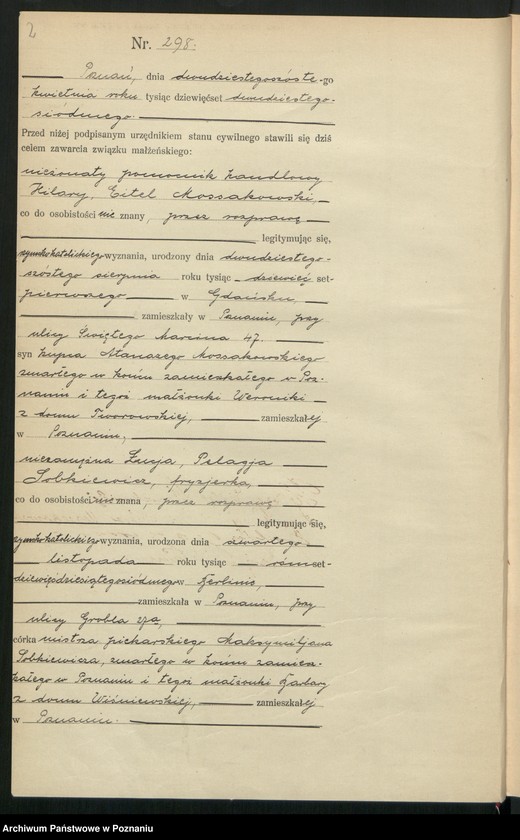 2
Nr. 298.
Poznań, dnia dwudziestegoszóste-go
kwietnia roku tysiąc dziewięćset dwudziestego-
siódmego.
Przed niżej podpisanym urzędnikiem stanu cywilnego stawili się dziś
celem zawarcia związku małżeńskiego:
nieżonaty pomocnik handlowy
Hilary, Eitel Mossakowski,
co do osobistości nie znany, przez rozprawę
legitymując się,
rzymskokatolickiego wyznania, urodzony dnia dwudziestego-
szóstego sierpnia roku tysiąc dziewięć set-
pierwszego w Gdańsku,
zamieszkały w Poznaniu, przy
ulicy Świętego Marcina 47.
syn kupca Atanazego Mossakowskiego
zmarłego w końcu zamieszkałego w Poz-
naniu i tegoż małżonki Weroniki
z domu Tworowskiej, zamieszkałej
w Poznaniu,
niezamężna Łucja, Pelagja
Sobkiewicz, fryzjerka,
co do osobistości nie znana, przez rozprawę
legitymując się,
rzymskokatolickiego wyznania, urodzona dnia czwartego
listopada roku tysiąc ośmset-
dziewięćdziesiątegosiódmego w Berlinie,
zamieszkała w Poznaniu, przy
ulicy Grobla 27a,
córka mistrza piekarskiego Maksymiljana
Sobkiewicza, zmarłego w końcu zamiesz-
kałego w Poznaniu i tegoż małżonki Barbary
z domu Wiśniewskiej, zamieszkałej
w Poznaniu.
Archiwum Państwowe w Poznaniu